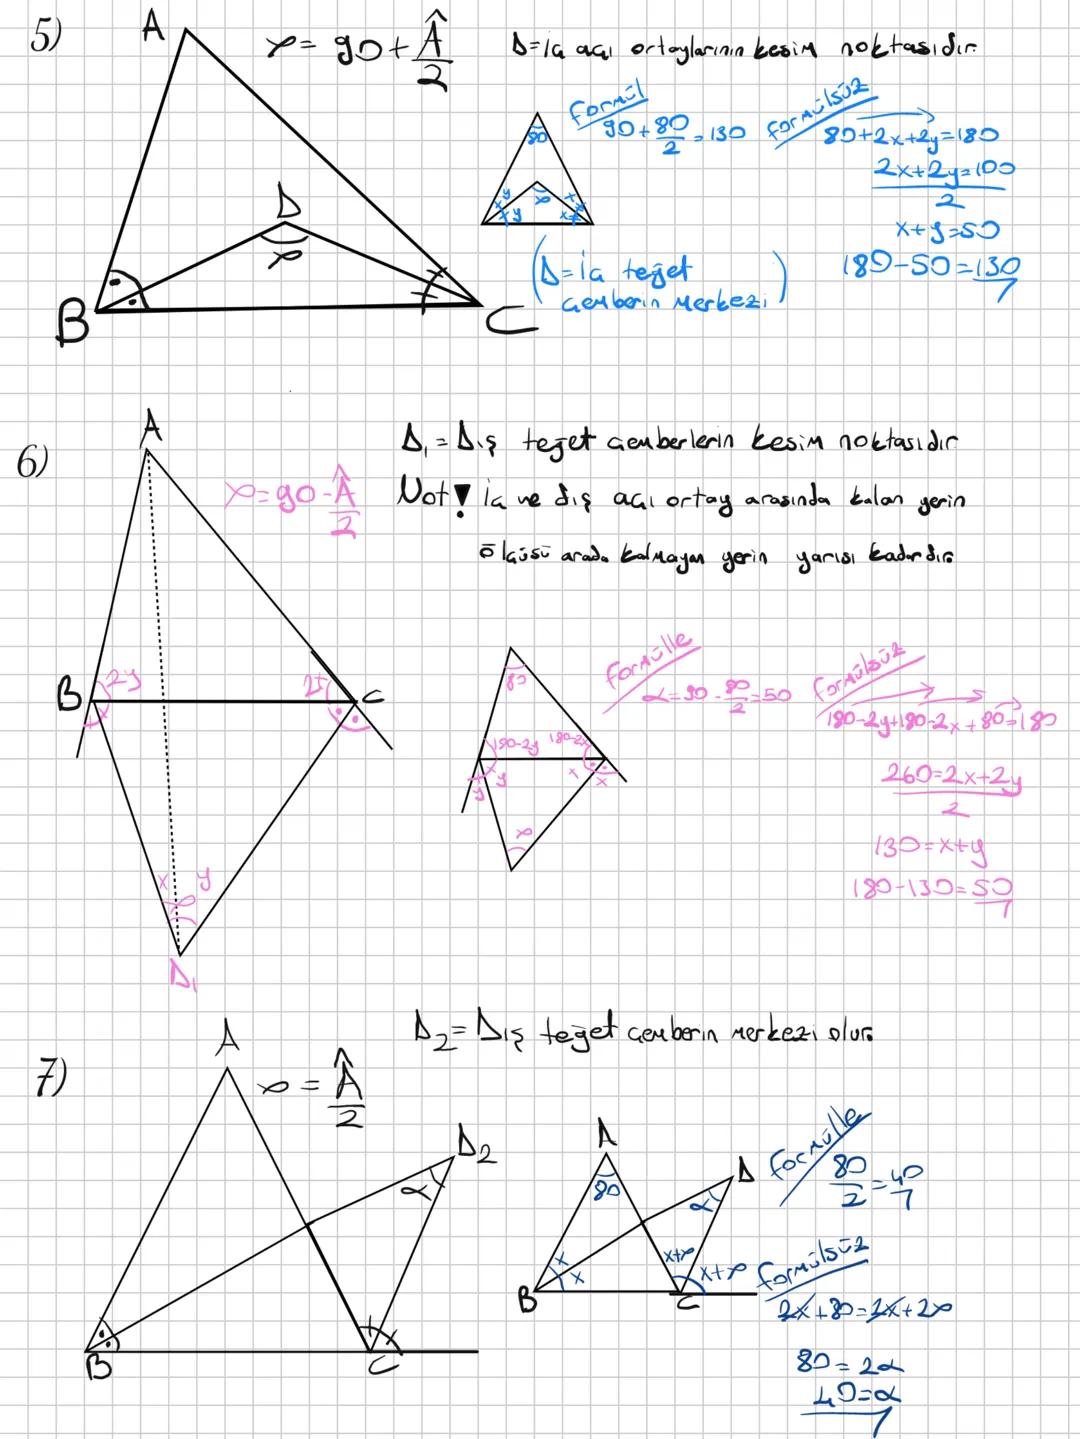 5)
A
α = 90 + Â/2
D = iç açı ortaylarının kesim noktasıdır.
D
α
B
C
80
y
y
α
x
x
Formül
90 + 80/2 = 130
Formülsüz
80+2x+2y=180
2x+2y=100
2
x+y=50
180-50=130
(D = İç teğet
çemberin merkezi)
6)
A
α = 90 - Â/2
D₁ = Dış teğet çemberlerin kesim noktasıdır
Not! İç ve dış açı ortay arasında kalan yerin
ölçüsü arada kalmayan yerin yarısı kadardır.
B
2y
C
x
y
α
D₁
80
180-2y
180-2x
y
y
x
x
α
Formülle
α = 90 - 80/2 = 50
Formülsüz
180-2y+180-2x+80=180
260=2x+2y
2
130=x+y
180-130=50
7)
A
α = Â/2
D₂ = Dış teğet çemberin merkezi olur.
D₂
α
B
C
A
80
D
α
x
x
x+α
x+α
B
C
Formülle
80/2 = 40
Formülsüz
2x+80=2x+2α
80=2α
40=α